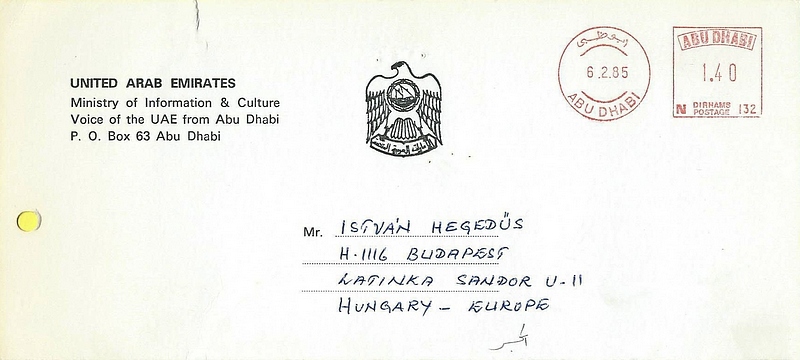 UNITED ARAB EMIRATES
Ministry of Information & Culture
Voice of the UAE from Abu Dhabi
P. O. Box 63 Abu Dhabi
ابوظبي
6.2.85
ABU DHABI
ABU DHABI
1.40
N DIRHAMS POSTAGE 132
الإمارات العربية المتحدة
Mr. ISTVÁN HEGEDŰS
H-1116 BUDAPEST
LATINKA SANDOR U-11
HUNGARY - EUROPE